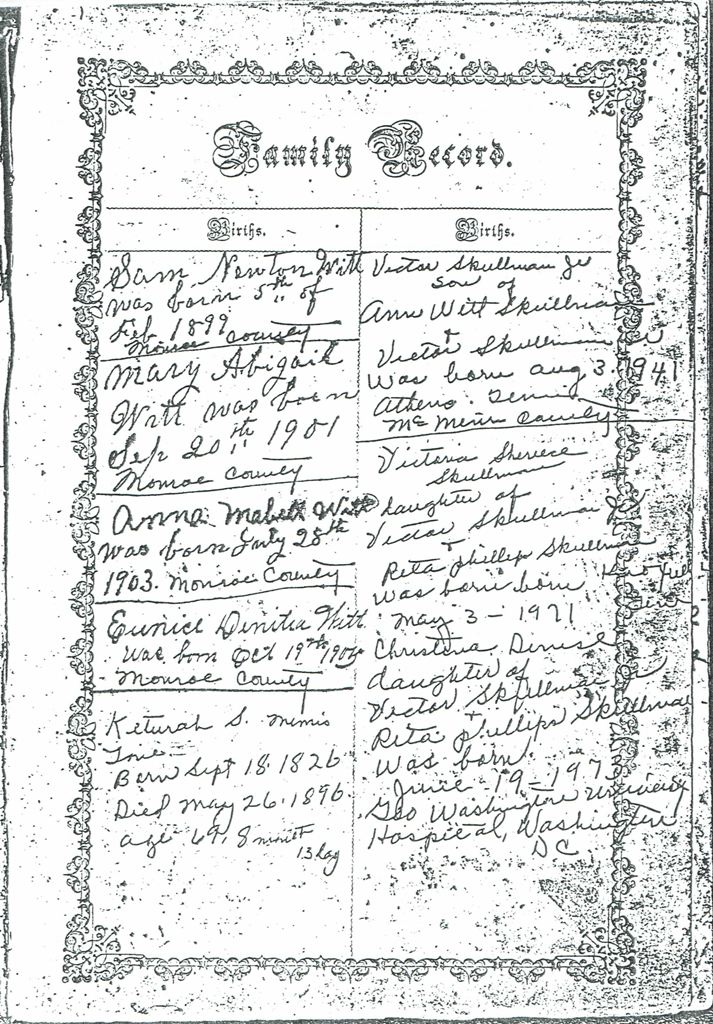 Family Record.
Births.
Sam Newton Witt
was born 5th of
Feb 1899
Monroe County
Mary Abigail
Witt was born
Sep 20th 1901
Monroe County
Anna Mabeth Witt
was born July 28th
1903. Monroe County
Eunice Witt
was born Oct 19th
Monroe County
Keturah S. Mimis
Born Sept 18. 1826
Died May 26. 1896
age 69. 8 month
13 day
Births.
Victor Skullman Jr
Son of
Ann Witt Skullman
+
Victor Skullman
was born Aug 3. 1941
Athens. Tenn
Mc Minn County
Victoria
Skullman
daughter of
Victor Skullman Jr
+
Rita Phillips Skullman
was born born
May 3 - 1971
Christina Denise
daughter of
Victor Skullman Jr
Rita Phillips Skullman
was born
June - 19 - 197
Geo Washington University
Hospital, Washington
DC